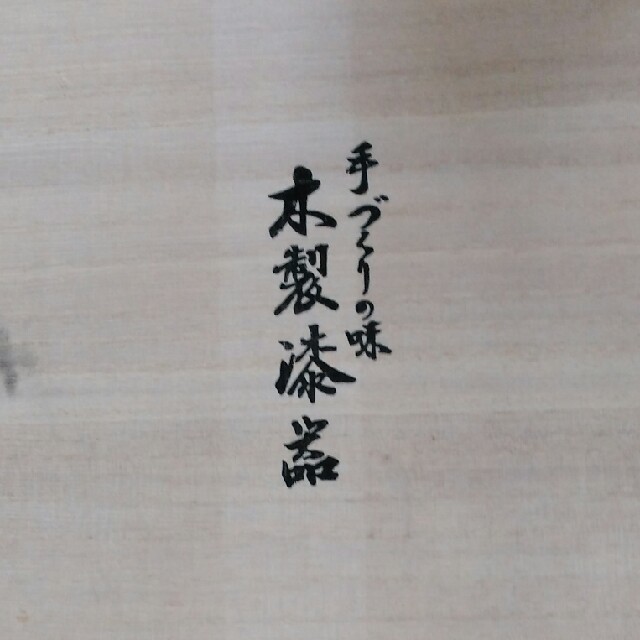 手づくりの味
木製漆器